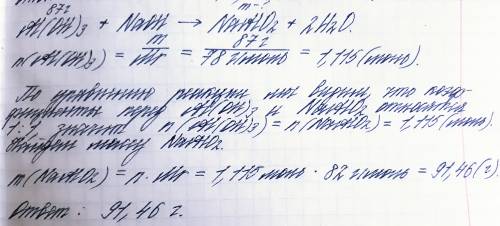 87г m-?
Al(OH)3 + NaOH → NaAlO2 + 2H2O.
n(Al(OH)3) = m/Mr = 87г/78г/моль = 1,115 (моль).
По уравнению реакции мы видим, что коэф-
фициенты перед Al(OH)3 и NaAlO2 относятся
1:1, значит n(Al(OH)3) = n(NaAlO2) = 1,115 (моль).
Найдем массу NaAlO2.
m(NaAlO2) = n · Mr = 1,115 моль · 82 г/моль = 91,46 (г).
Ответ: 91,46 г.